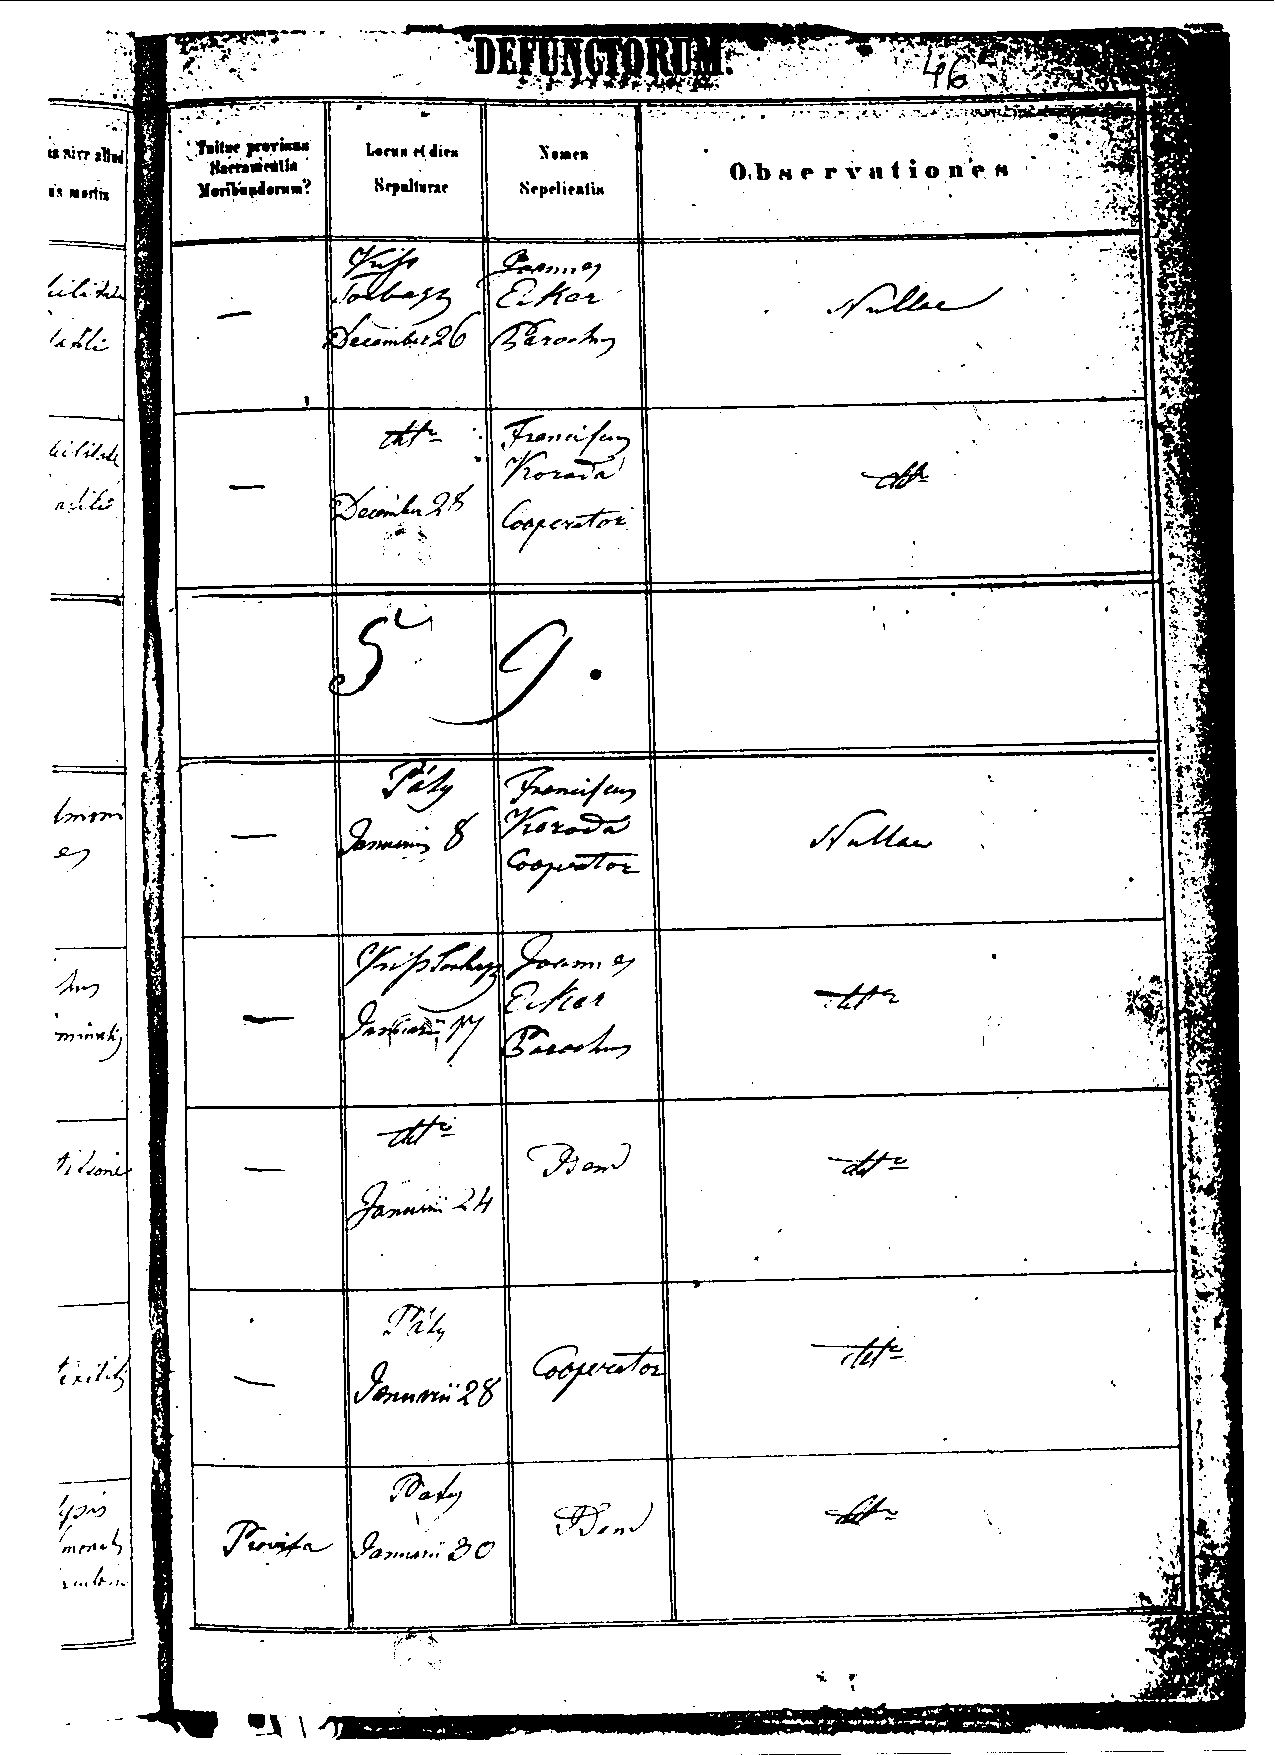 DEFUNCTORUM.
46
Fuitne provisus
Sacramentis
Moribundorum?
Locus et dies
Sepulturae
Nomen
Sepelientis
Observationes
—
Kiss
Torbágy
December 26
Joannes
Ecker
Parochus
Nullae
—
dtto
December 28
Franciscus
Korada
Cooperator
dtto
5 9.
—
Páty
Januarii 8
Franciscus
Korada
Cooperator
Nullae
—
Kiss Torbágy
Januarii 17
Joannes
Ecker
Parochus
dtto
—
dtto
Januarii 24
Idem
dtto
—
Páty
Januarii 28
Cooperator
dtto
Provisa
Páty
Januarii 30
Idem
dtto